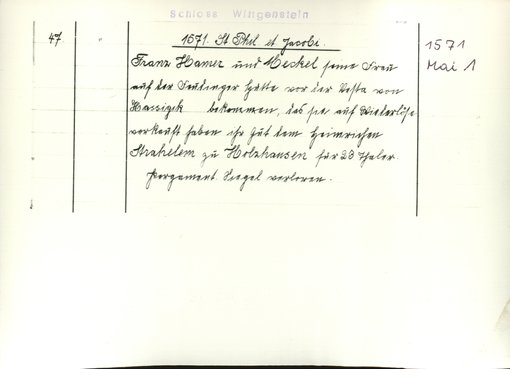 Schloss Wittgenstein
47 1571. St. Phil et Jacobi. 1571
Mai 1
Franz Hamer und Meckel seine Frau
auf der Feudinger Hütte vor der
von
bekennen, das sie auf Wiederlöse
verkauft haben ihr Gut dem Heinrichen
zu Holzhausen für 23 Thaler
Pergament. Siegel verloren.